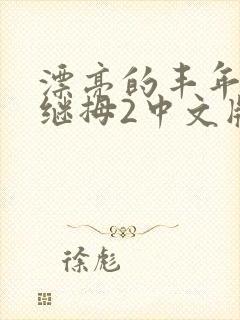 漂亮的丰年
继拇2中文版
徐彪